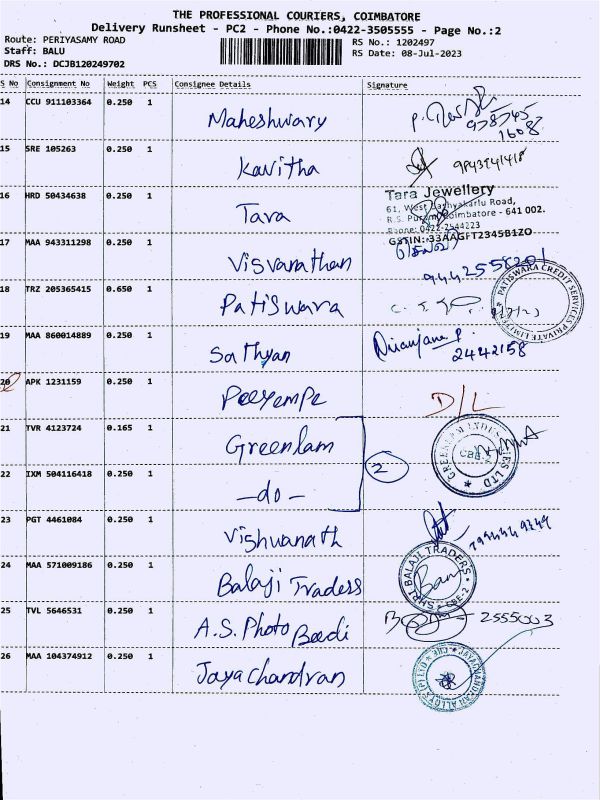 THE PROFESSIONAL COURIERS, COIMBATORE
Delivery Runsheet - PC2 - Phone No.:0422-3505555 - Page No.:2
Route: PERIYASAMY ROAD
RS No.: 1202497
Staff: BALU
RS Date: 08-Jul-2023
DRS No.: DCJB120249702
S No Consignment No Weight PCS Consignee Details Signature
14 CCU 911103364 0.250 1 Maheshwary
15 SRE 105263 0.250 1 Kavitha
16 HRD 50434638 0.250 1 Tara
Tara Jewellery
61, West Bashyakarlu Road,
R.S. Puram, Coimbatore - 641 002.
Phone: 0422-2544223
GSTIN: 33AAGFT2345B1ZO
17 MAA 943311298 0.250 1 Visvanathan
18 TRZ 205365415 0.650 1 Patiswara
PATISWARA CREDIT SERVICES PRIVATE LIMITED
19 MAA 860014889 0.250 1 Sathyan Niranjana P.
2442158
20 APK 1231159 0.250 1 Peeyempe D/L
21 TVR 4123724 0.165 1 Greenlam
GREENLAM INDUSTRIES LTD
CBE-2
2
22 IXM 504116418 0.250 1 -do-
23 PGT 4461084 0.250 1 Vishwanath
24 MAA 571009186 0.250 1 Balaji Traders
SHRI BALAJI TRADERS
CBE-2
25 TVL 5646531 0.250 1 A.S. Photo Beedi 2555003
26 MAA 104374912 0.250 1 Jayachandran